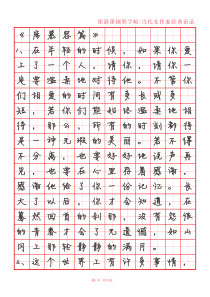 徐静蕾钢笔字帖 当代女作家经典语录
《席慕蓉篇》
1、在年轻的时候,如果你爱
上了一个人,请你,请你一
定要温柔地对待他。不管你
们相爱的时间有多长或多
短,若你们能始终温柔地相
待,那么,所有的时刻都将
是一种无瑕的美丽。若不得
不分离,也要好好地说声再
见,也要在心里存着感谢,
感谢他给了你一份记忆。长
大了以后,你才会知道,在
蓦然回首的刹那,没有怨恨
的青春才会了无遗憾,如山
冈上那轮静静的满月。
2、这个世界上有许多事情,